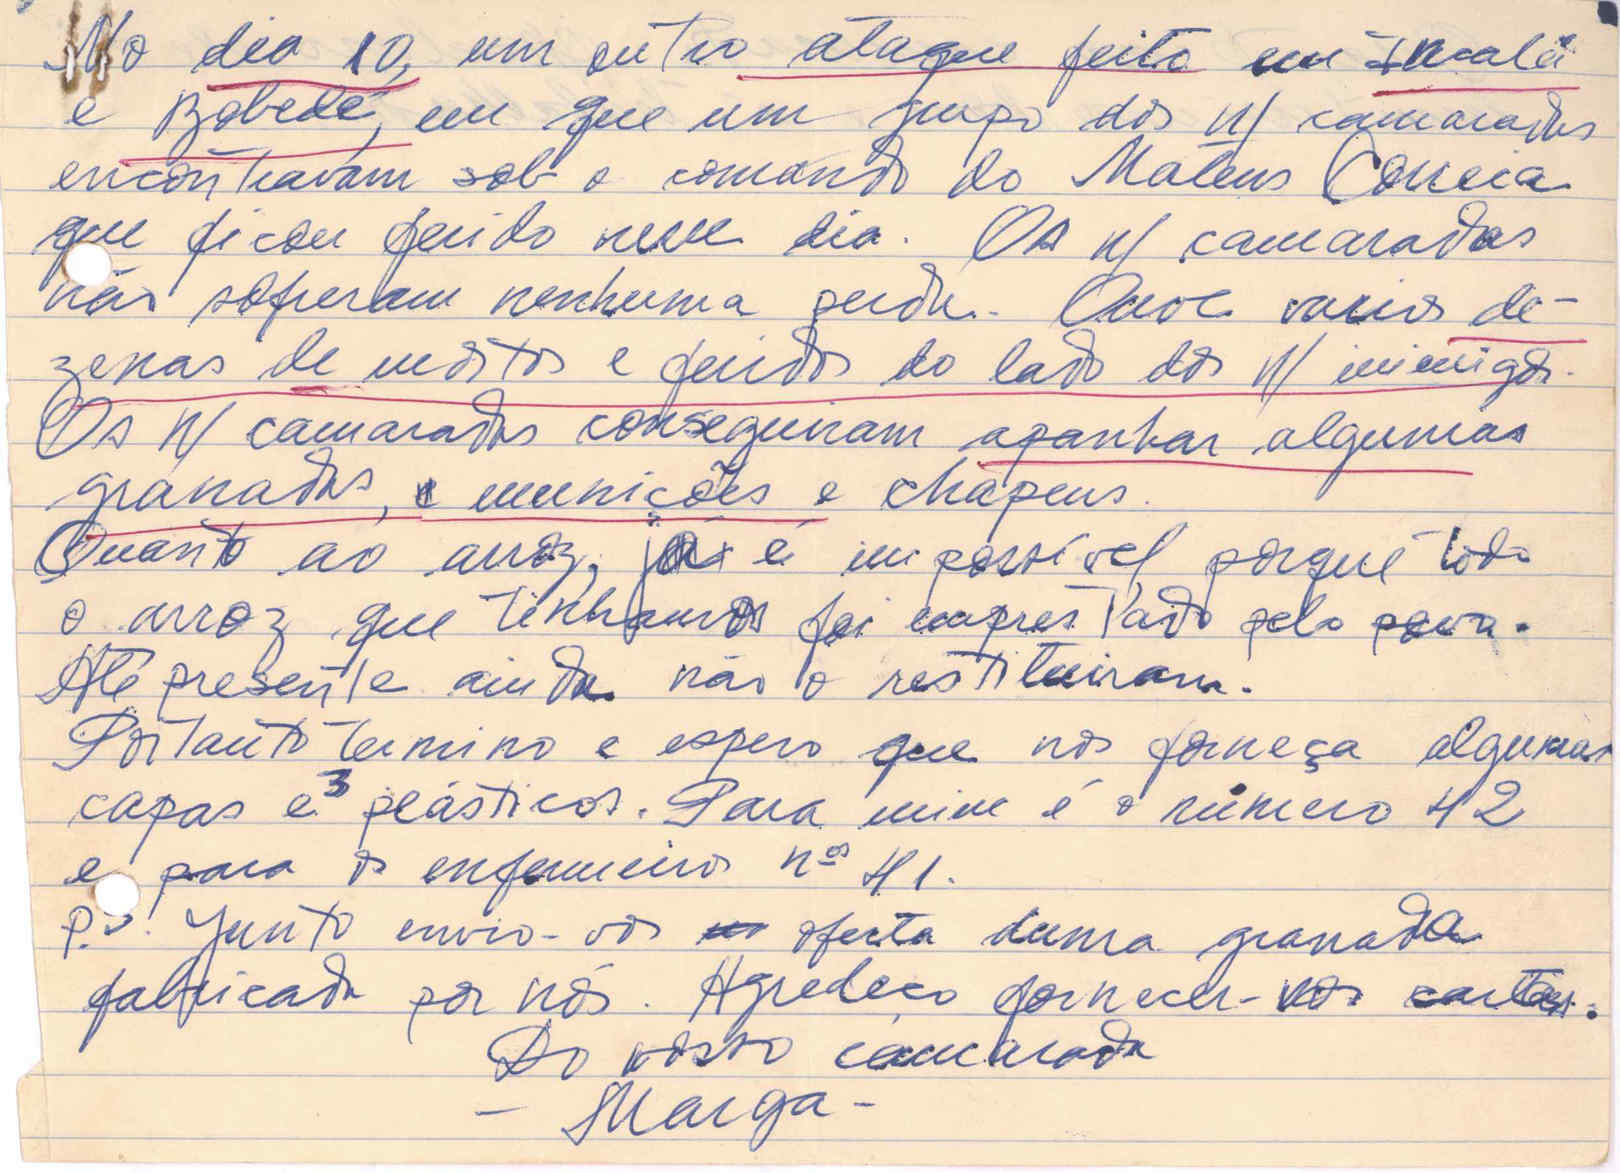 No dia 10, um outro ataque feito em Inchalé
e Bobede, em que um grupo dos n/ camaradas
encontravam sob o comando do Mateus Correia
que ficou ferido nesse dia. Os n/ camaradas
não sofreram nenhuma perda. Ouve varios de-
zenas de mortos e feridos do lado dos n/ inimigos.
Os n/ camaradas conseguiram apanhar algumas
granadas, munições e chapeus.
Quanto ao arroz, já é impossível porque todo
o arroz que tinhamos foi emprestado pelo povo.
Até presente ainda não o restituiram.
Portanto termino e espero que nos forneça algumas
capas e 3 plásticos. Para mim é o número 42
e para os enfermeiros nºs 41.
P.S. Junto envio-vos oferta duma granada
fabricada por nós. Agredeço fornecer-nos cartas.
Do vosso camarada
- Marga -